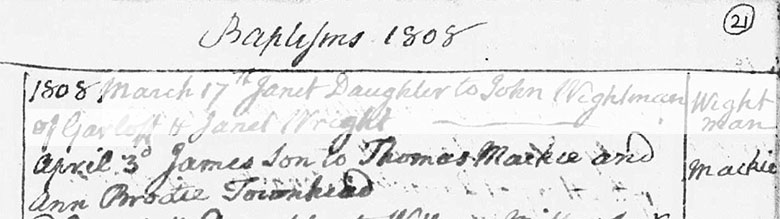 21
Baptisms 1808
1808 March 17th Janet Daughter to John Wightman
of Garloff & Janet Wright
Wight
man
April 3d James Son to Thomas Mackie and
Ann Brodie Townhead
Mackie